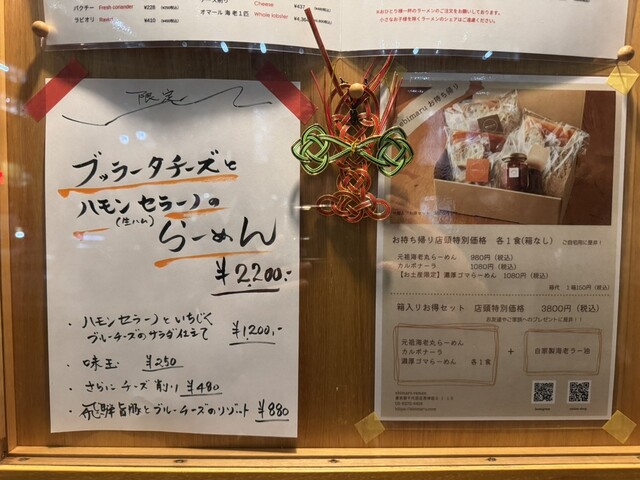 パクチー Fresh coriander ¥228
ラビオリ ¥410
Cheese
オマール海老1匹 Whole lobster
※おひとり様一杯のラーメンのご注文をお願いしております。
小さなお子様を除くラーメンのシェアはご遠慮ください。
限定
ブッラータチーズと
ハモンセラーノの
(生ハム)
らーめん
¥2,200.-
・ハモンセラーノといちじく
ブルーチーズのサラダ仕立て ¥1,200.-
・味玉 ¥250
・さらにチーズ削り ¥480
・飛騨旨豚とブルーチーズのリゾット ¥880
ebimaru お持ち帰り
お持ち帰り店頭特別価格 各1食(箱なし) ご自宅用に最適!
元祖海老丸らーめん 980円(税込)
カルボナーラ 1080円(税込)
【お土産限定】濃厚ゴマらーめん 1080円(税込)
箱代 1箱110円(税込)
箱入りお得セット 店頭特別価格 3800円(税込)
お友達やご家族へのプレゼントに最適!!
元祖海老丸らーめん
カルボナーラ
濃厚ゴマらーめん 各1食
+
自家製海老ラー油